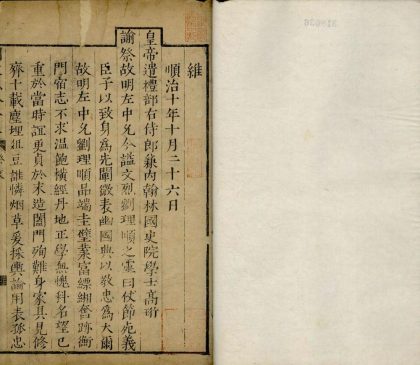 維
順治十年十月二十六日
皇帝遣禮部右侍郎兼內翰林國史院學士高珩
諭祭故明左中允今諡文烈劉理順之靈曰仗節死義
臣子以致身為先闡微表幽國典以教忠為大爾
故明左中允劉理順品端圭璧業富縹緗奮跡衡
門宿志不求溫飽橫經丹地正學無愧科名望已
重於當時誼更貞於末造闔門殉難身家具見修
齊十載塵埋俎豆誰憐烟草爰採輿論用表孤忠